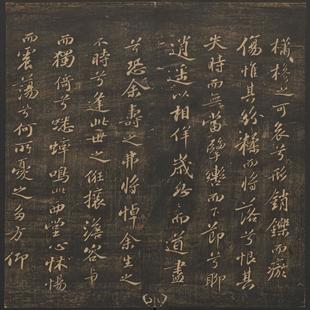 櫹槮之可哀兮形銷鑠而瘀
傷惟其紛糅而將落兮恨其
失時而無當擥轡而下節兮聊
逍遙以相佯歲忽忽而遒盡
兮恐余壽之弗將悼余生之
不時兮逢此世之俇攘澹容與
而獨倚兮蟋蟀鳴此西堂心怵惕
而震蕩兮何所憂之多方仰